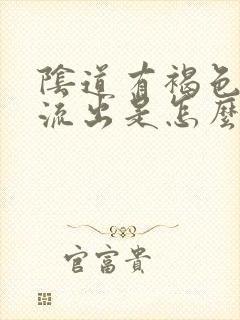 陰道有褐色
流出是怎麼
官富貴